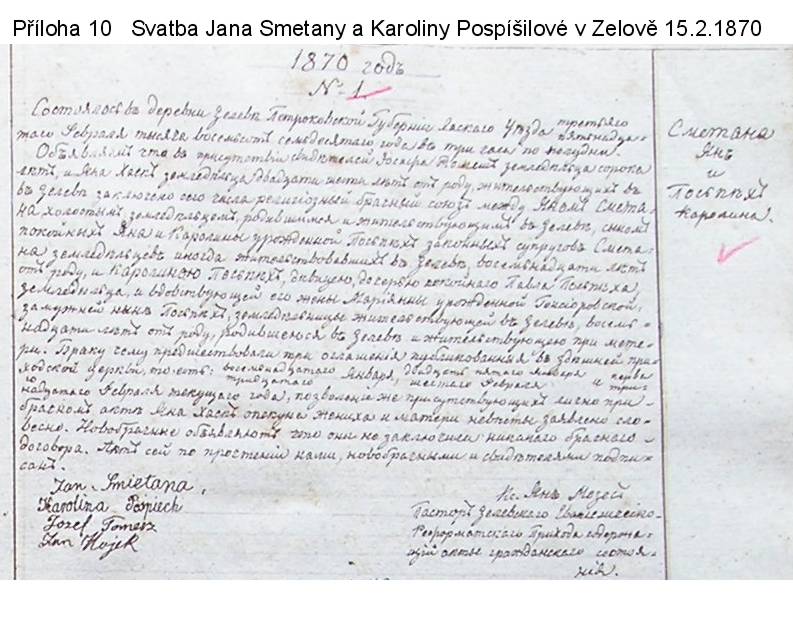 Příloha 10 Svatba Jana Smetany a Karoliny Pospíšilové v Zelově 15.2.1870
1870 годъ
№ 1
Состоялось въ деревни Зелевѣ Петроковской Губерніи Ласкаго Уѣзда третьяго
пятнадца-
таго Февраля тысяча восемьсотъ семьдесятаго года въ три часа по полудни.
Объявляемъ что въ присутствіи свидѣтелей землядѣльца сорока
лѣтъ, и Яна землядѣльца двадцати шести лѣтъ отъ роду, жительствующихъ въ
въ Зелевѣ заключено сего числа религіозный брачный союзъ между Яномъ Смета-
на холостымъ землядѣльцемъ, родившимся и жительствующимъ въ Зелевѣ, сыномъ
покойныхъ Яна и Каролины урожденной законныхъ супруговъ Смета-
на землядѣльцевъ иногда жительствовавшихъ въ Зелевѣ, восемьнадцати лѣтъ
отъ роду, и Каролиною дѣвицею, дочерью покойнаго Павла
землядѣльца, и вдовствующей его жены Маріанны урожденной
замужней нынѣ землядѣльницы жительствующей въ Зелевѣ, восемь-
надцати лѣтъ отъ роду, родившеюся въ Зелевѣ и жительствующею при мате-
ри. Браку сему предшествовали три оглашенія публикованныя въ здѣшней при-
ходской церкви, то есть: восемнадцатаго Января, двадцать пятаго Января и перва
тридцатаго шестаго Февраля и три-
надцатаго Февраля текущаго года, позволеніе же присутствующихъ лично при
брачномъ актѣ Яна опекуна жениха и матери невѣсты заявлено сло-
весно. Новобрачные объявляютъ что они не заключили никакого брачнаго
договора. Актъ сей по прочтеніи нами, новобрачными и свидѣтелями подпи-
санъ.
Jan Smietana.
Karolina Pospiech
Jozef Tomesz
Jan Hajek
Кс. Янъ Мозесъ
Пасторъ Зелевскаго Евангелическо-
Реформатскаго Прихода содержа-
щій акты гражданскаго состоя-
нія.
Сметана
Янъ
и
Поспѣхъ
Каролина.